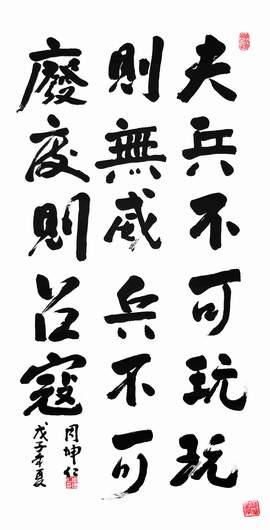 夫兵不可玩玩
則無威兵不可
廢废則召寇
周坤仁
戊子年夏